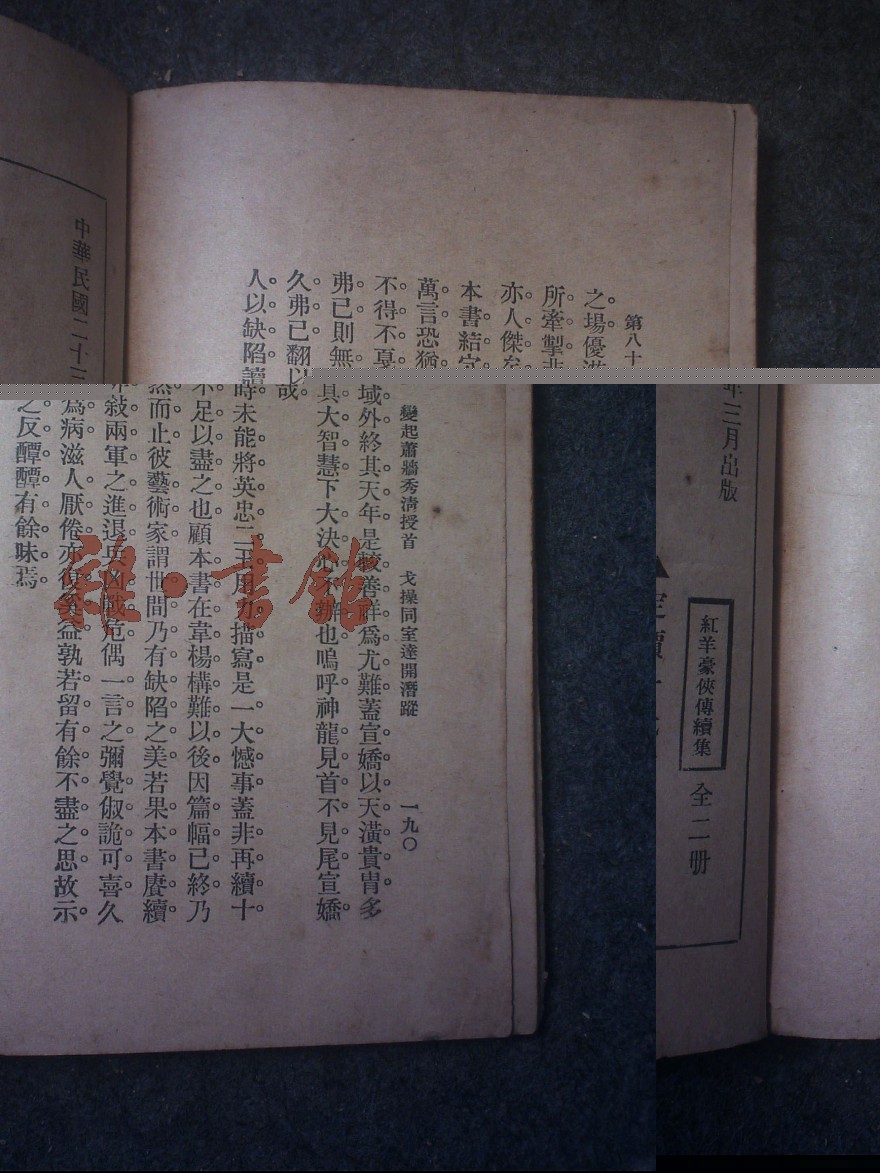 第八十
之場優游
所牽掣非
亦人傑矣
本書結宄
萬言恐猶
不得不戛
弗已則無
久弗已翻以
人以缺陷讀
中華民國二十三
變起蕭牆秀淸授首 戈操同室達開潛蹤 一九〇
域外終其天年是較善祥爲尤難蓋宣嬌以天潢貴胄多
具大智慧下大決心不辦也嗚呼神龍見首不見尾宣嬌
哉
時未能將英忠二王用力描寫是一大憾事蓋非再續十
不足以盡之也顧本書在韋楊構難以後因篇幅已終乃
然而止彼藝術家謂世間乃有缺陷之美若果本書賡續
敍兩軍之進退兵凶戰危偶一言之彌覺俶詭可喜久
爲病滋人厭倦亦復奚益孰若留有餘不盡之思故示
之反醰醰有餘味焉
年三月出版
紅羊豪俠傳續集
全二册
定價
雜·書館